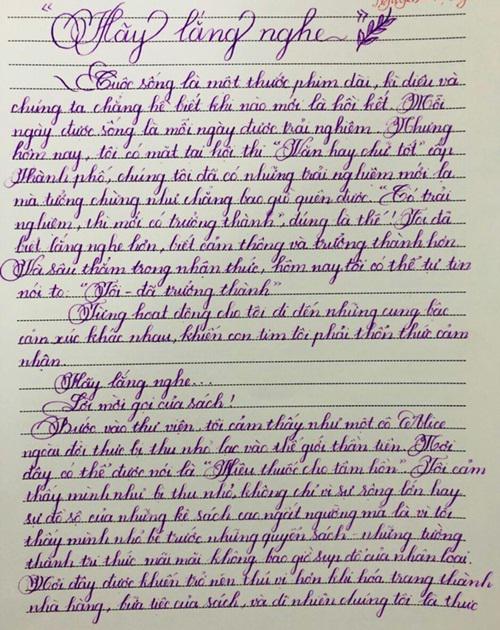 "Hãy lắng nghe"
Cuộc sống là một thước phim dài, kì diệu và
chúng ta chẳng hề biết khi nào mới là hồi kết. Mỗi
ngày được sống là mỗi ngày được trải nghiệm. Nhưng
hôm nay, tôi có mặt tại hội thi "Văn hay chữ tốt" cấp
thành phố, chúng tôi đã có những trải nghiệm mới lạ
mà tưởng chừng như chẳng bao giờ quên được. "Có trải
nghiệm, thì mới có trưởng thành", đúng là thế! Tôi đã
biết lắng nghe hơn, biết cảm thông và trưởng thành hơn.
Và sâu thẳm trong nhận thức, hôm nay tôi có thể tự tin
nói to: "Tôi - đã trưởng thành"
Từng hoạt động cho tôi đi đến những cung bậc
cảm xúc khác nhau, khiến con tim tôi phải thổn thức cảm
nhận.
Hãy lắng nghe...
Lời mời gọi của sách!
Bước vào thư viện, tôi cảm thấy như một cô Alice
ngoài đời thực bị thu nhỏ lạc vào thế giới thần tiên. Nơi
đây có thể được nói là "Hiệu thuốc cho tâm hồn". Tôi cảm
thấy mình như bị thu nhỏ, không chỉ vì sự rộng lớn hay
sự đồ sộ của những kệ sách cao ngất ngưởng mà là vì tôi
thấy mình nhỏ bé trước những quyển sách - những tường
thành tri thức mãi mãi không bao giờ sụp đổ của nhân loại.
Nơi đây được khiến trở nên thú vị hơn khi hóa trang thành
nhà hàng, bữa tiệc của sách, và dĩ nhiên chúng tôi là thực